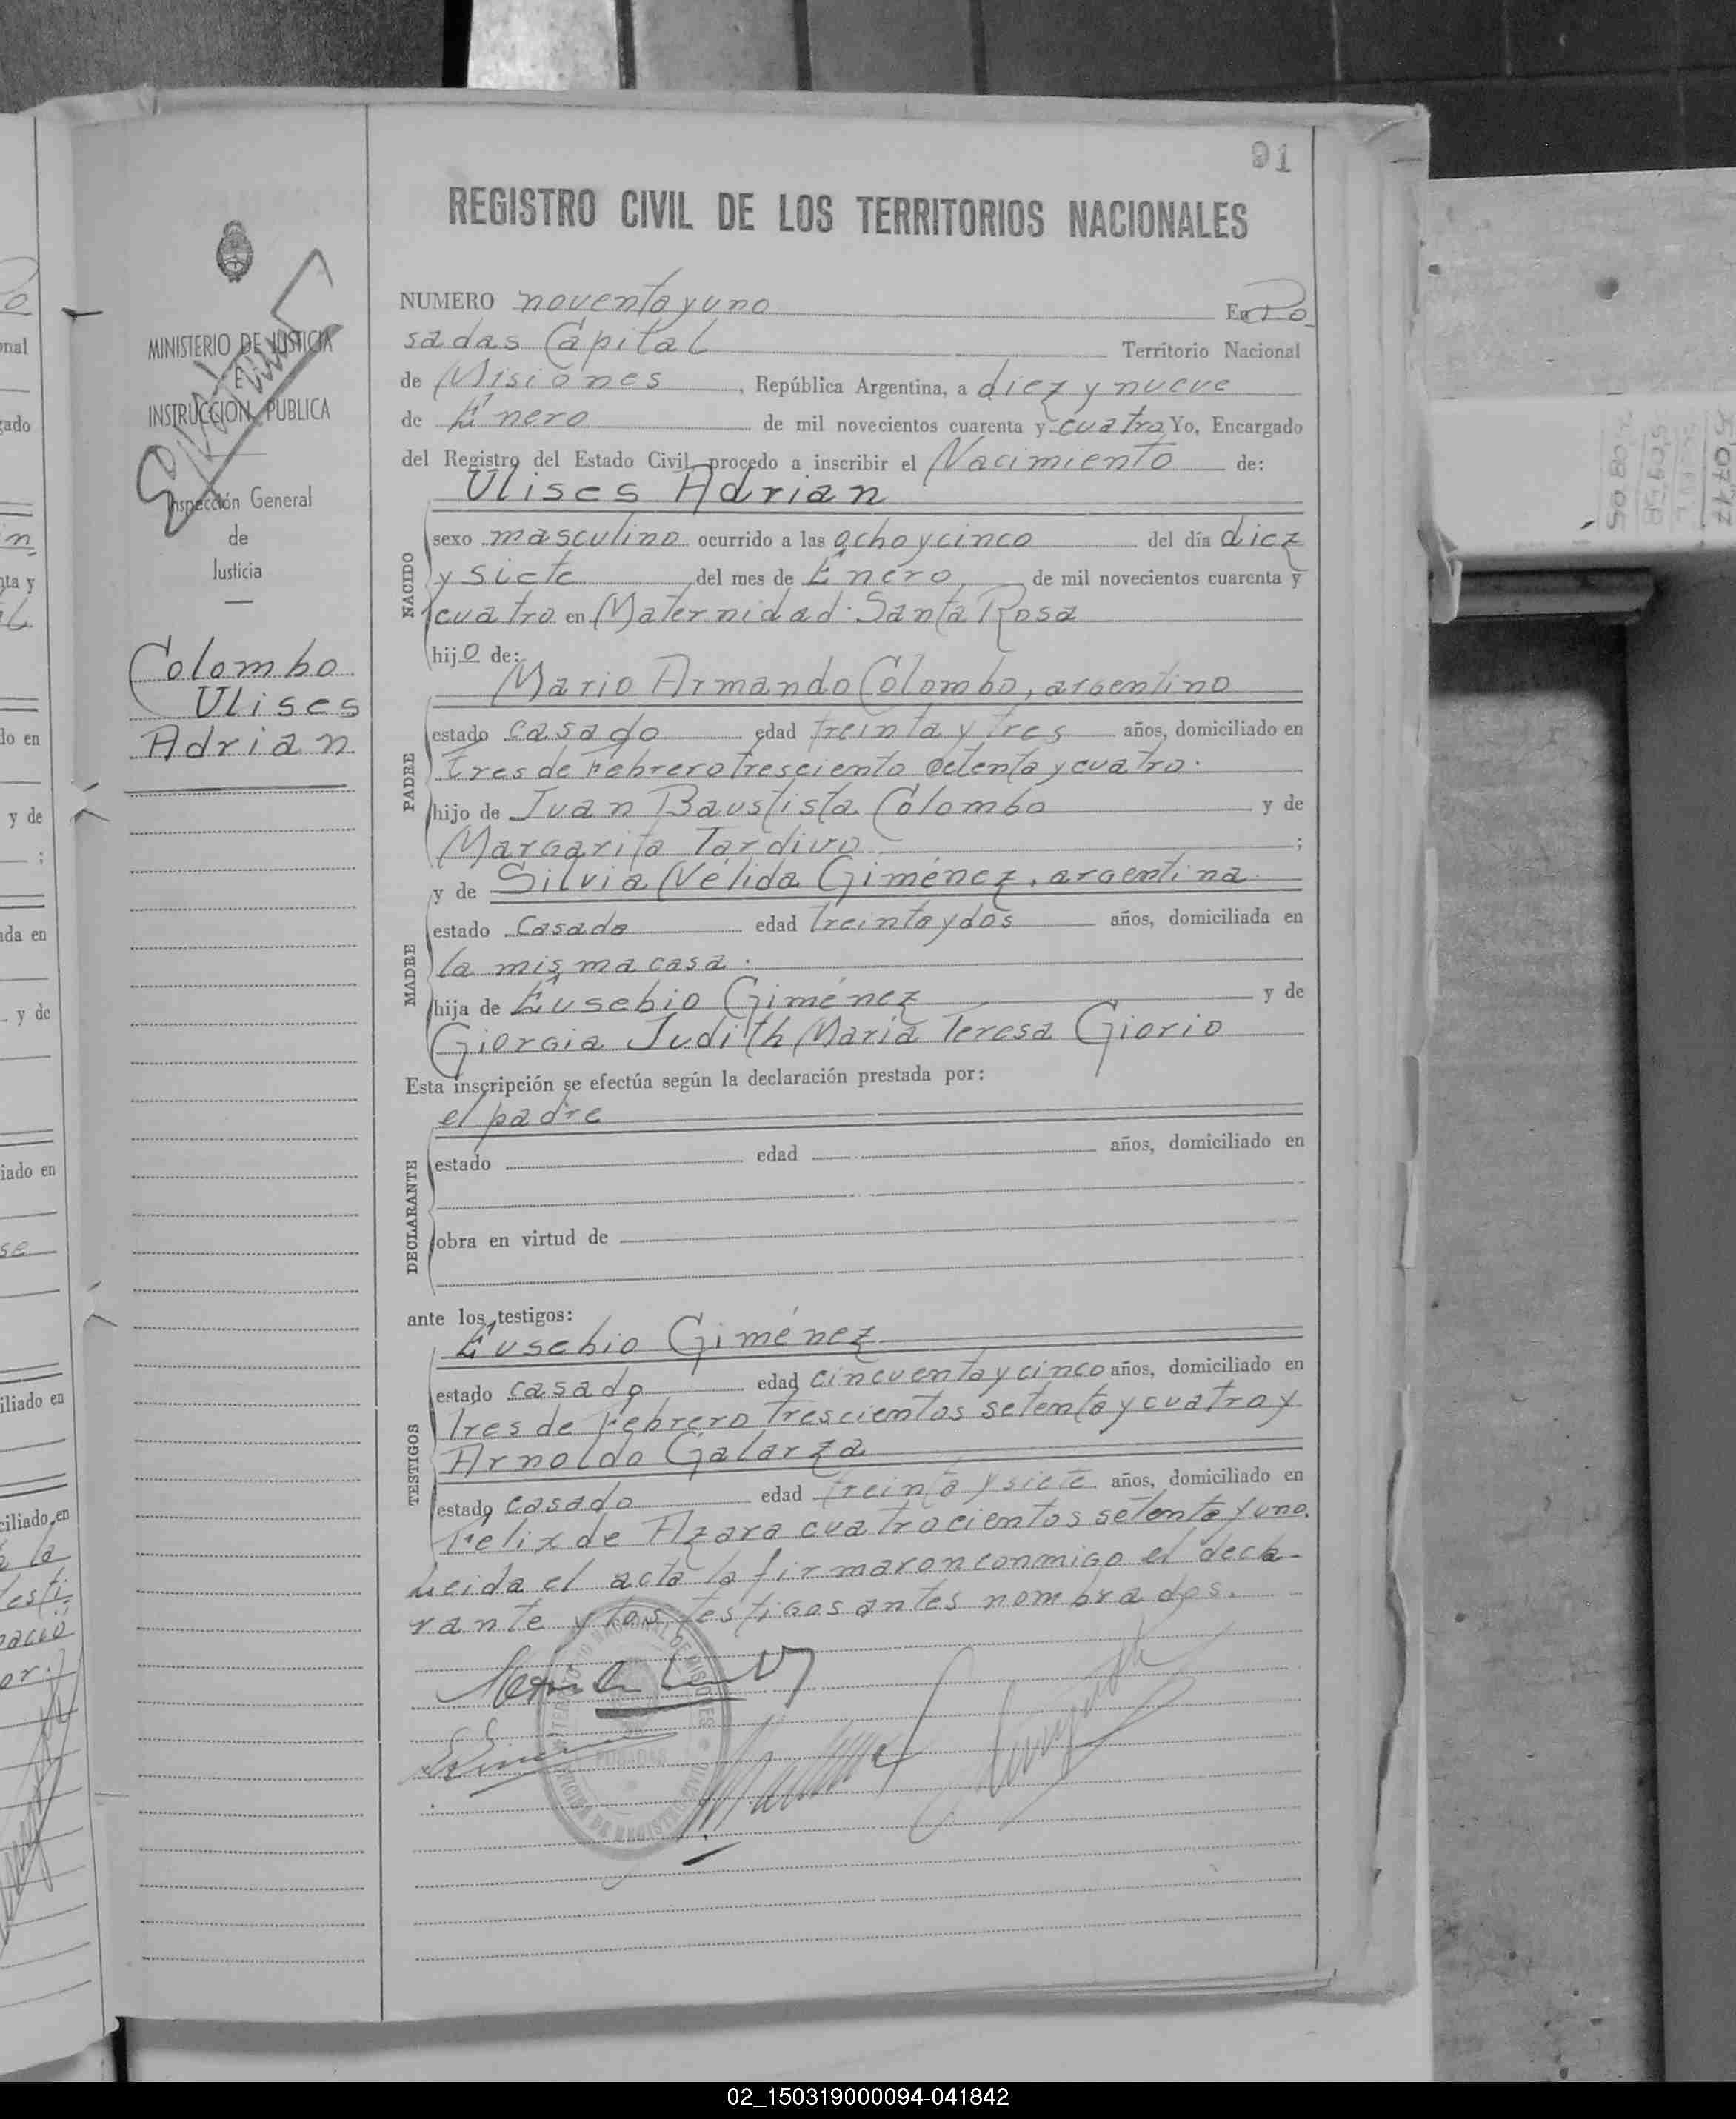 91
REGISTRO CIVIL DE LOS TERRITORIOS NACIONALES
MINISTERIO DE JUSTICIA
E
INSTRUCCIÓN PUBLICA
Inspección General
de
Justicia
Colombo
Ulises
Adrian
NUMERO noventa y uno En Po
sadas Capital Territorio Nacional
de Misiones, República Argentina, a diez y nueve
de Enero de mil novecientos cuarenta y cuatro Yo, Encargado
del Registro del Estado Civil, procedo a inscribir el Nacimiento de:
Ulises Adrian
NACIDO
sexo masculino ocurrido a las ocho y cinco del día diez
y siete del mes de Enero de mil novecientos cuarenta y
cuatro en Maternidad Santa Rosa
hijo de:
Mario Armando Colombo, argentino
PADRE
estado casado edad treinta y tres años, domiciliado en
tres de Febrero tresciento setenta y cuatro.
hijo de Juan Baustista Colombo y de
Margarita Tardivo ;
y de Silvia Nélida Giménez, argentina
MADRE
estado casada edad treinta y dos años, domiciliada en
la misma casa.
hija de Eusebio Giménez y de
Giorgia Judith María Teresa Giorio
Esta inscripción se efectúa según la declaración prestada por:
el padre
DECLARANTE
estado edad años, domiciliado en
obra en virtud de
ante los testigos:
Eusebio Giménez
TESTIGOS
estado casado edad cincuenta y cinco años, domiciliado en
Tres de Febrero trescientos setenta y cuatro y
Arnoldo Galarza
estado casado edad treinta y siete años, domiciliado en
Felix de Azara cuatrocientos setenta y uno.
Leida el acta la firmaron conmigo el decla-
rante y los testigos antes nombrados.
TERRITORIO NACIONAL DE MISIONES
POSADAS
OFICINA DE REGISTRO CIVIL
02_150319000094-041842